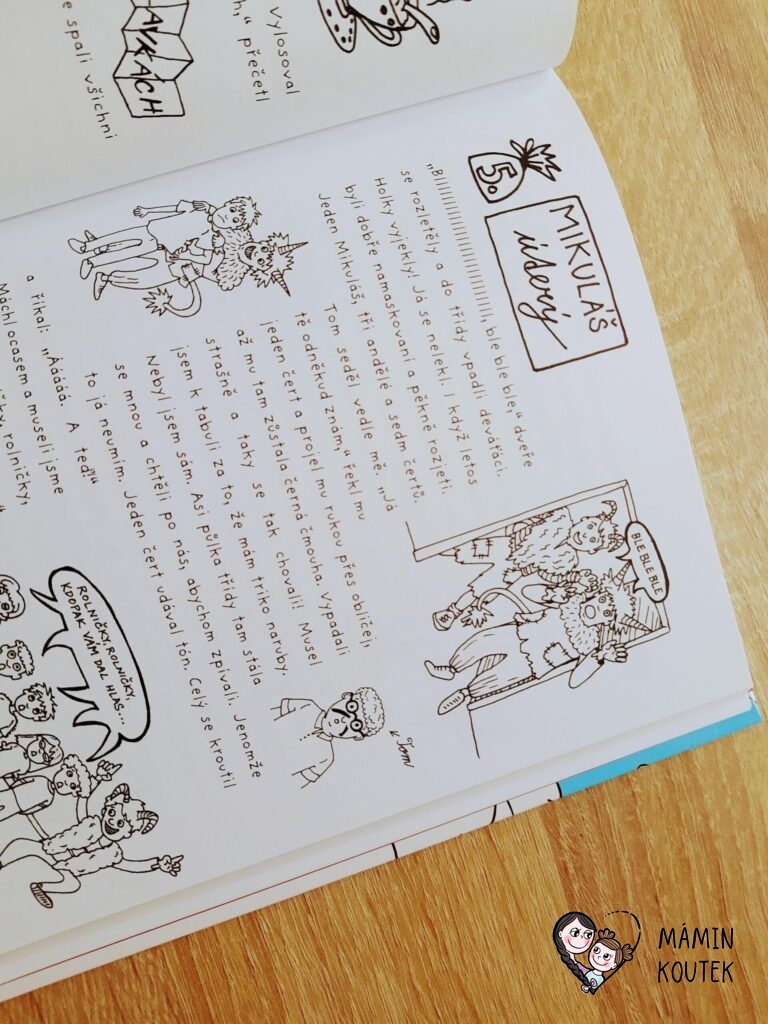 Vylosoval
h,“ přečetl
AVKÁCH
e spali všichni
5.
MIKULÁŠ
úterý
„Blllllllllllllllllllllllllll, ble ble ble,“ dveře
se rozletěly a do třídy vpadli deváťáci.
Holky vyjekly! Já se nelekl. I když letos
byli dobře namaskovaní a pěkně rozjetí.
Jeden Mikuláš, tři andělé a sedm čertů.
Tom seděl vedle mě. „Já
tě odněkud znám,“ řekl mu
jeden čert a projel mu rukou přes obličej,
až mu tam zůstala černá čmouha. Vypadali
strašně a taky se tak chovali! Musel
jsem k tabuli za to, že mám triko naruby.
Nebyl jsem sám. Asi půlka třídy tam stála
se mnou a chtěli po nás, abychom zpívali. Jenomže
to já neumím. Jeden čert udával tón. Celý se kroutil
a říkal: „Ááááá. A teď!“
Máchl ocasem a museli jsme
rolničky,
BLE BLE BLE
Tom
ROLNIČKY, ROLNIČKY,
KDOPAK VÁM DAL HLAS...
MÁMIN
KOUTEK